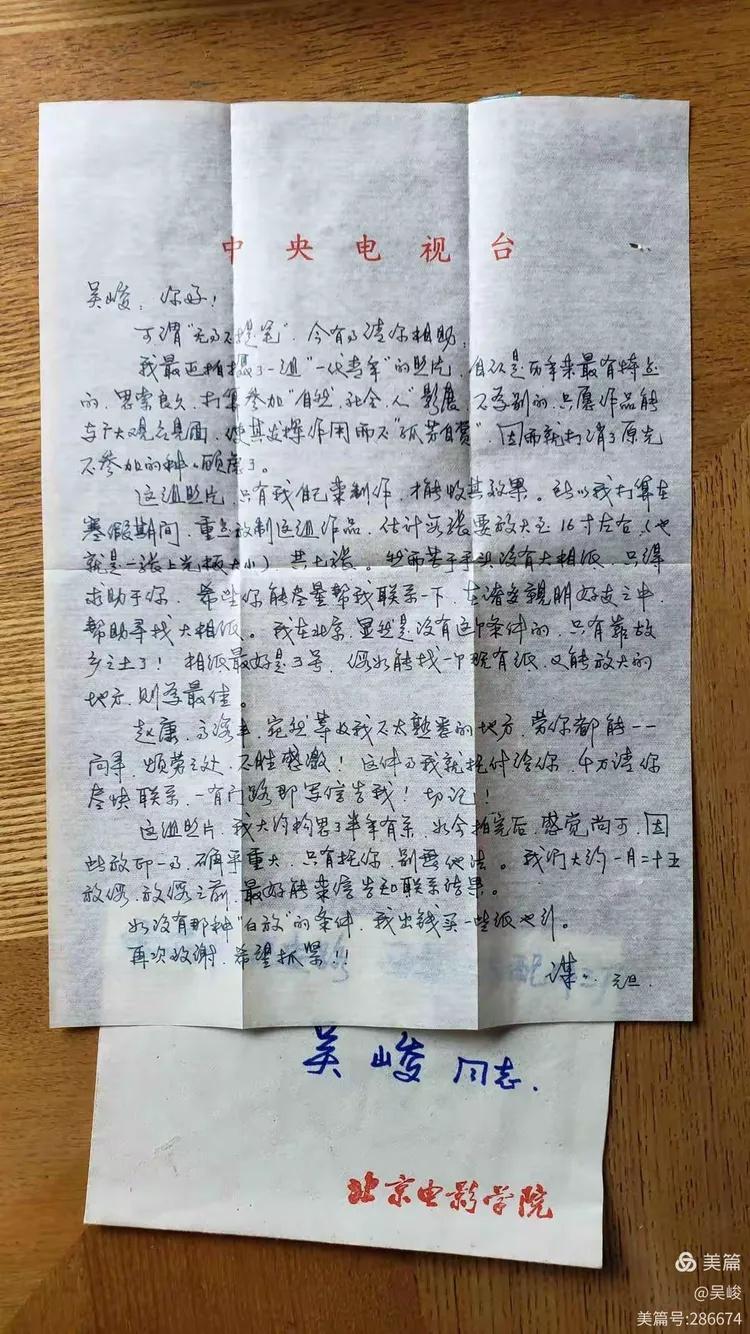 中央电视台
吴峻：你好！
可谓“无事不提笔”，今有事请你相助。
我最近拍摄了一组“一代青年”的照片，自认是历年来最有特点
的，思索良久，打算参加“自然、社会、人”影展，不为别的，只愿作品能
与广大观众见面，使其发挥作用而不“孤芳自赏”，因而就打消了原先
不参加的种种顾虑了。
这组照片，只有我自己来制作，才能收其效果。所以我打算在
寒假期间，重点放制这组作品，估计每张要放大至16寸左右（也
就是一张上光板大小），共七张。然而苦于手头没有大相纸，只得
求助于你，希望你能尽量帮我联系一下，在诸多亲朋好友之中，
帮助寻找大相纸。我在北京，显然是没有这个条件的，只有靠故
乡之土了！相纸最好是3号，假如能找一个既有纸，又能放大的
地方，则为最佳。
赵康、宛然等以我不太熟悉的地方，劳你都能一一
问寻，烦劳之处，不胜感激！这件事我就托付给你，千万请你
尽快联系，一有门路即写信告我！切记！
这组照片，我大约构思了半年有余，如今拍完后，感觉尚可，因
此放印一事，确乎重大，只有托你，别无他法。我们大约一月二十五
放假，放假之前，最好能来信告知联系结果。
如没有那种“白放”的条件，我出钱买一些纸也行。
再次致谢，希望抓紧！！
元旦.
吴峻 同志.
北京电影学院
美篇
@吴峻
美篇号:286674